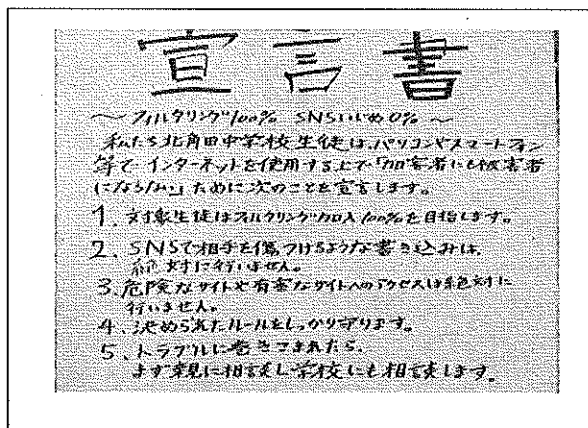 宣言書
～フィルタリング100% SNSいじめ0%～
私たち北角田中学校生徒は、パソコンやスマートフォン
等でインターネットを使用する上で「加害者にも被害者
にならない」ために次のことを宣言します。
1. 対象生徒はフィルタリング加入100%を目指します。
2. SNSで相手を傷つけるような書き込みは、
絶対に行いません。
3. 危険なサイトや有害なサイトへのアクセスは絶対に
行いません。
4. 決められたルールをしっかり守ります。
5. トラブルに巻きこまれたら、
まず親に相談し学校にも相談します。